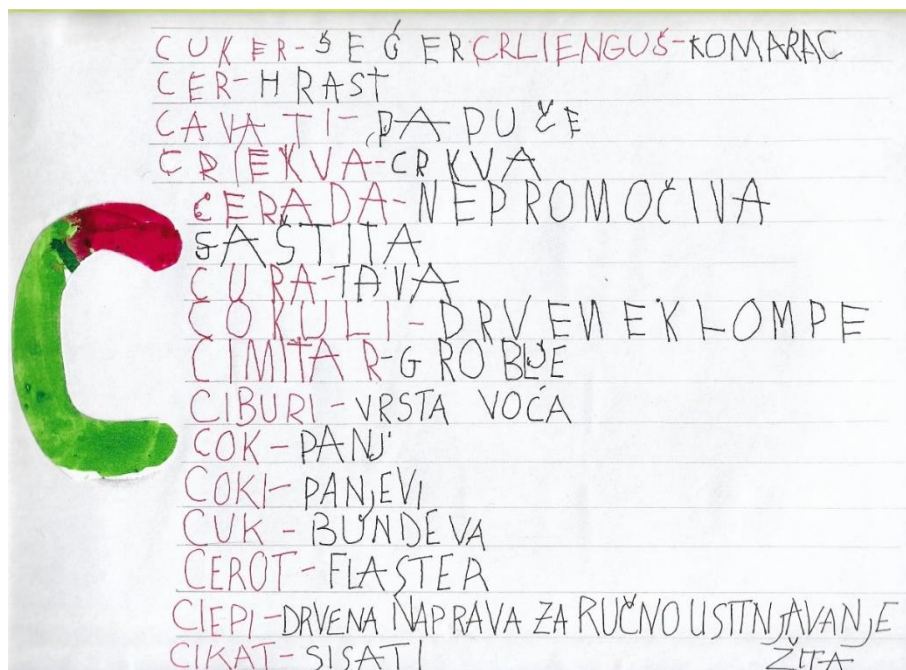 CUKER-ŠEĆER CRLIENGUŠ-KOMARAC
CER-HRAST
CAVATI-PAPUČE
CRIEKVA-CRKVA
CERADA-NEPROMOČIVA
ZAŠTITA
CURA-TAVA
COKULI-DRVENE KLOMPE
CIMITAR-GROBLJE
CIBURI-VRSTA VOĆA
COK-PANJ
COKI-PANJEVI
CUK-BUNDEVA
CEROT-FLASTER
CIEPI-DRVENA NAPRAVA ZA RUČNO USITNJAVANJE
CIKAT-SISATI ŽITA
C